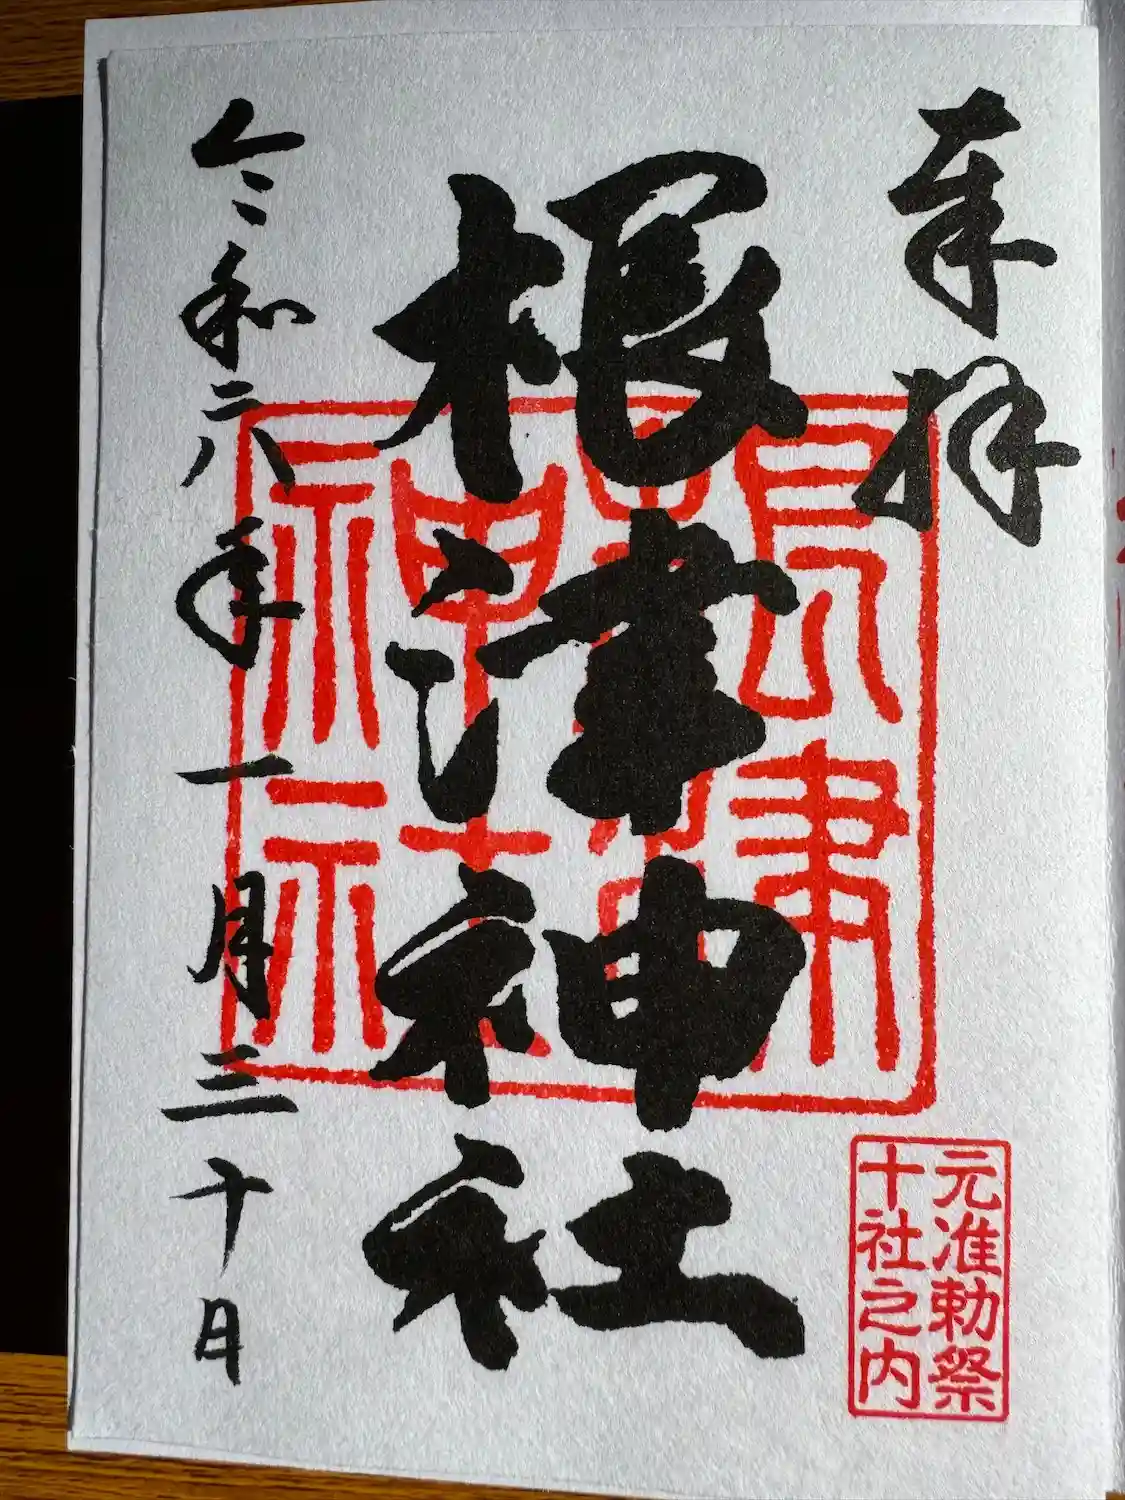 奉拝
根津神社
令和六年一月三十日
根津
神社
元准勅祭
十社之内